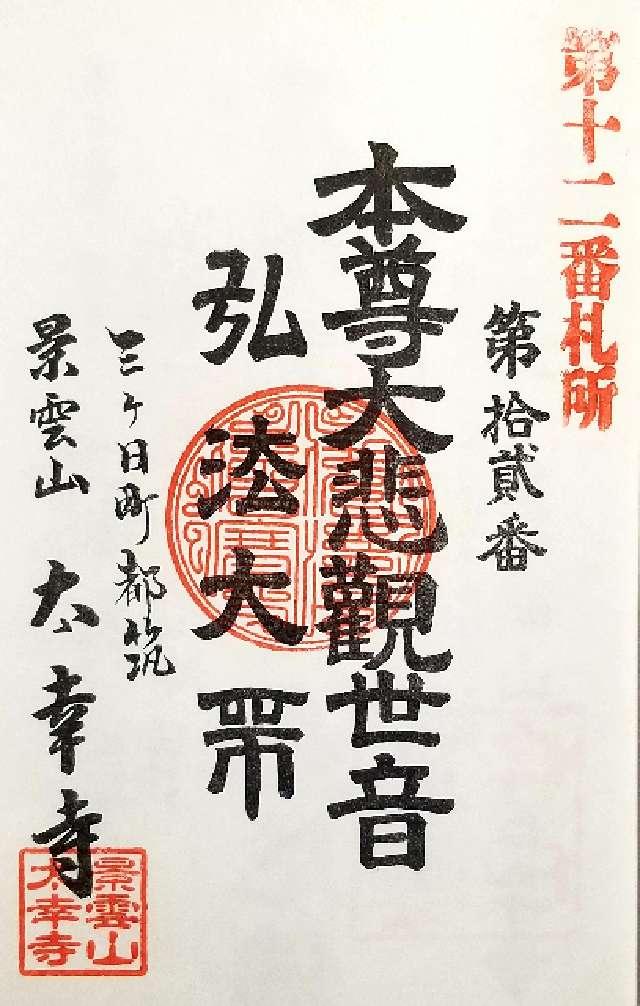 第十二番札所
第拾貳番
本尊大悲觀世音
弘法大師
三ケ日町都筑
景雲山 太幸寺
景雲山
太幸寺